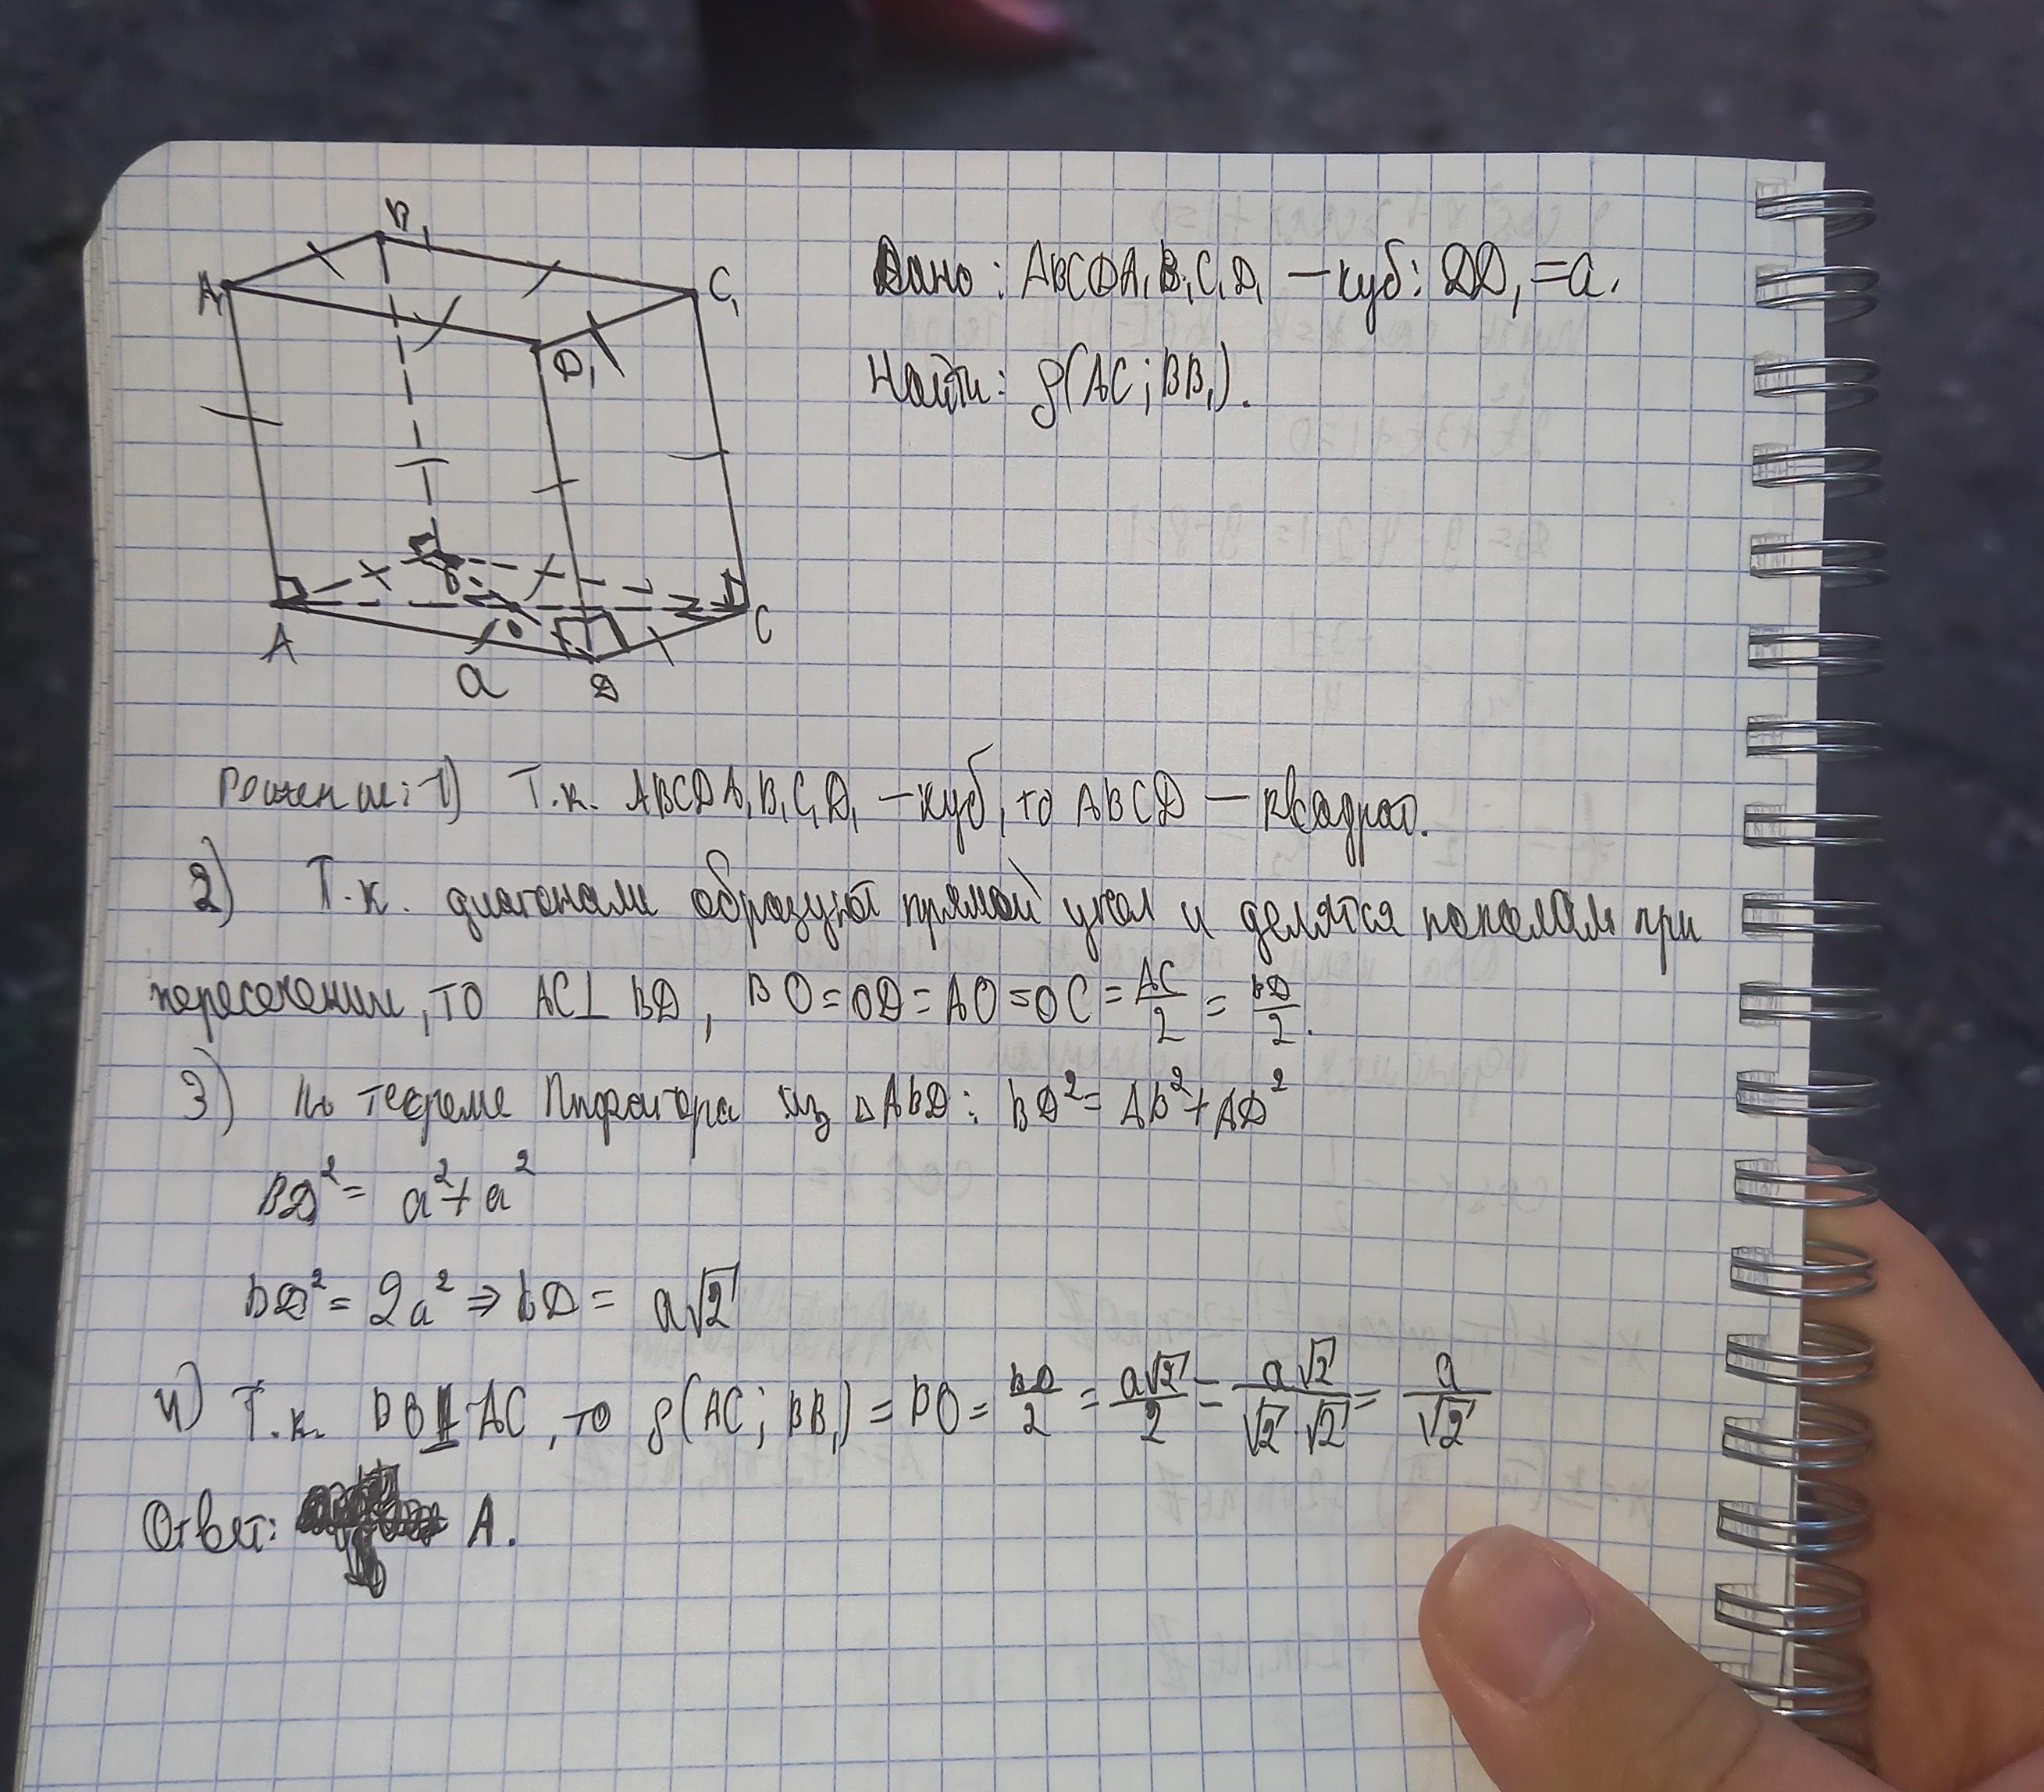 B₁
A₁
C₁
D₁
Дано: ABCDA₁B₁C₁D₁ – куб: DD₁ = a.
Найти: ρ(AC; BB₁).
B
O
A
C
a
D
Решение: 1) Т.к. ABCDA₁B₁C₁D₁ – куб, то ABCD – квадрат.
2) Т.к. диагонали образуют прямой угол и делятся пополам при
пересечении, то AC ⊥ BD, BO = OD = AO = OC = AC/2 = BD/2.
3) По теореме Пифагора из △ABD: BD² = AB² + AD²
BD² = a² + a²
BD² = 2a² ⇒ BD = a√2
4) Т.к. BO ⊥ AC, то ρ(AC; BB₁) = BO = BD/2 = a√2/2 = a√2/(√2·√2) = a/√2
Ответ: А.